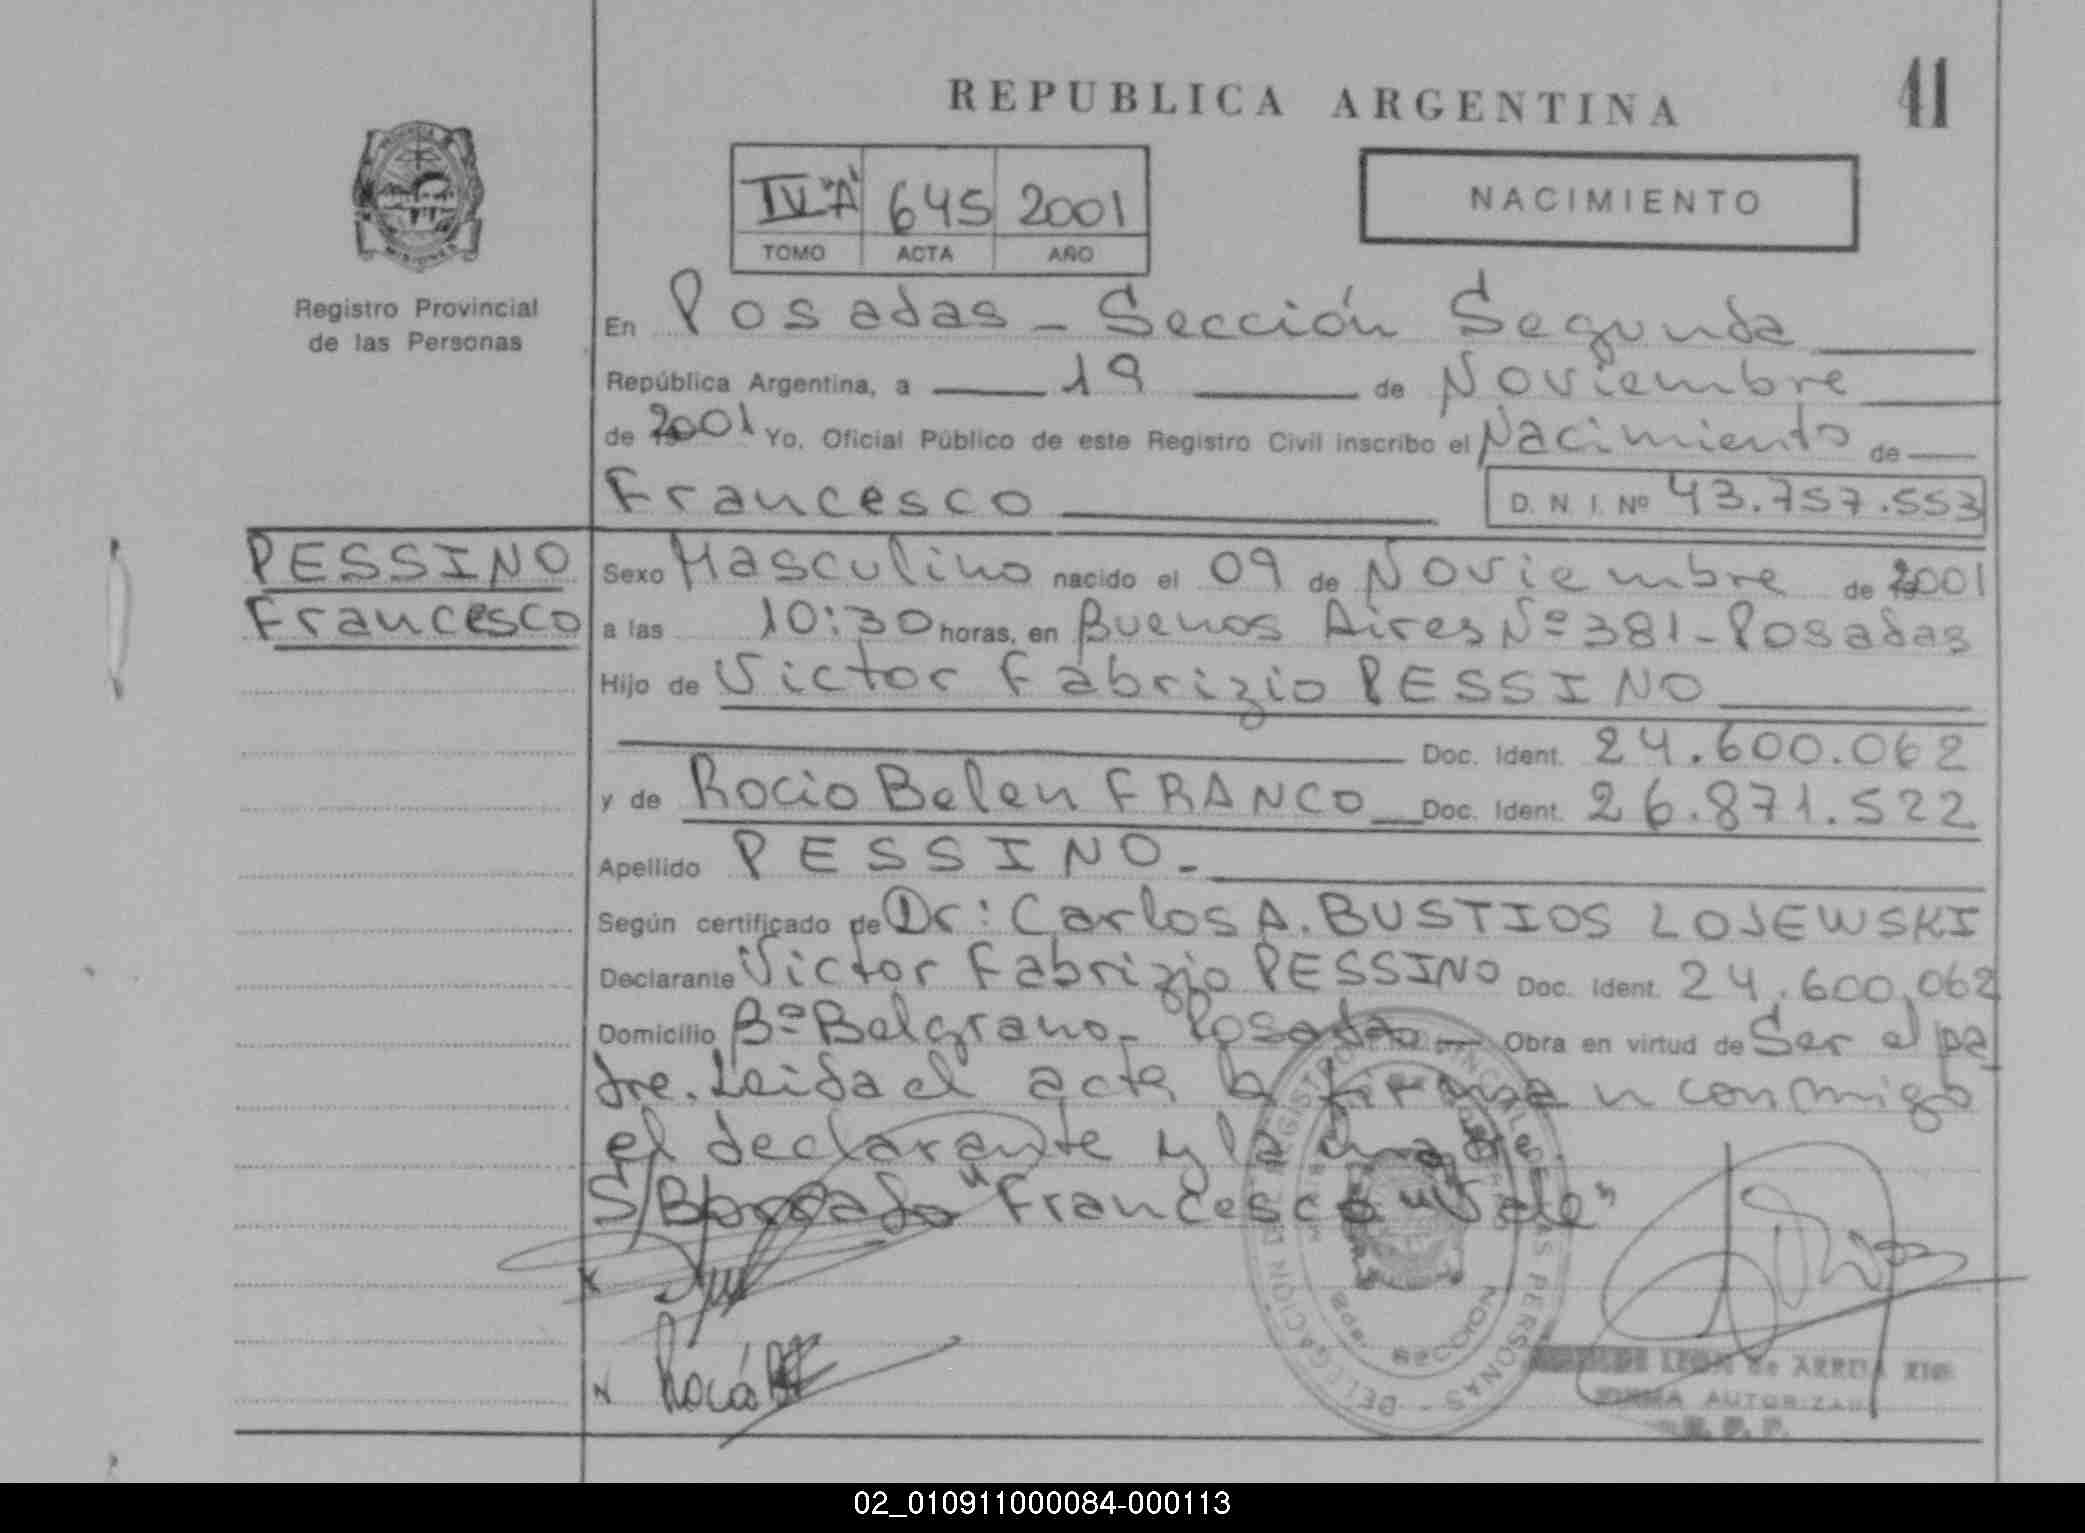 REPUBLICA ARGENTINA
41
IV "A" 645 2001
TOMO ACTA AÑO
NACIMIENTO
Registro Provincial
de las Personas
En Posadas - Sección Segunda
República Argentina, a 19 de Noviembre
de 2001 Yo, Oficial Público de este Registro Civil inscribo el Nacimiento de
Francesco D. N. I. Nº 43.757.553
PESSINO
Francesco
Sexo Masculino nacido el 09 de Noviembre de 2001
a las 10:30 horas, en Buenos Aires Nº 381 - Posadas
Hijo de Victor Fabrizio PESSINO
Doc. Ident. 24.600.062
y de Rocio Belen FRANCO Doc. Ident. 26.871.522
Apellido PESSINO.-
Según certificado de Dr: Carlos A. BUSTIOS LOJEWSKI
Declarante Victor Fabrizio PESSINO Doc. Ident. 24.600.062
Domicilio Bº Belgrano - Posadas - Obra en virtud de Ser el pa
dre. Leida el acta la firman conmigo
el declarante y la madre.
S/Borrado "Francesco" "Vale"
Rocío
LEON de ARRUA
FIRMA AUTORIZADA
R. P. P.
DELEGACION DEL REGISTRO PROVINCIAL DE LAS PERSONAS
2da. SECCION
02_010911000084-000113